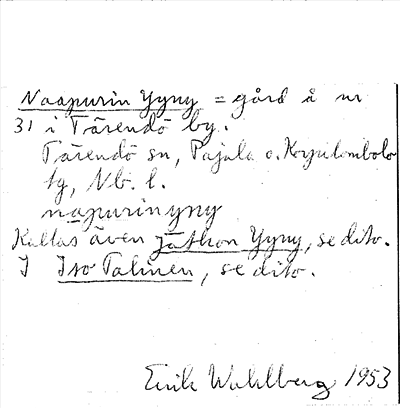 Naapurin Yyny = gård å nr
31 i Tärendö by.
Tärendö sn, Pajala o. Korpilombolo
tg, Nb. l.
napurinyny
Kallas även Jäthon Yyny, se dito.
I Iso Talinen, se dito.
Erik Wahlberg 1953